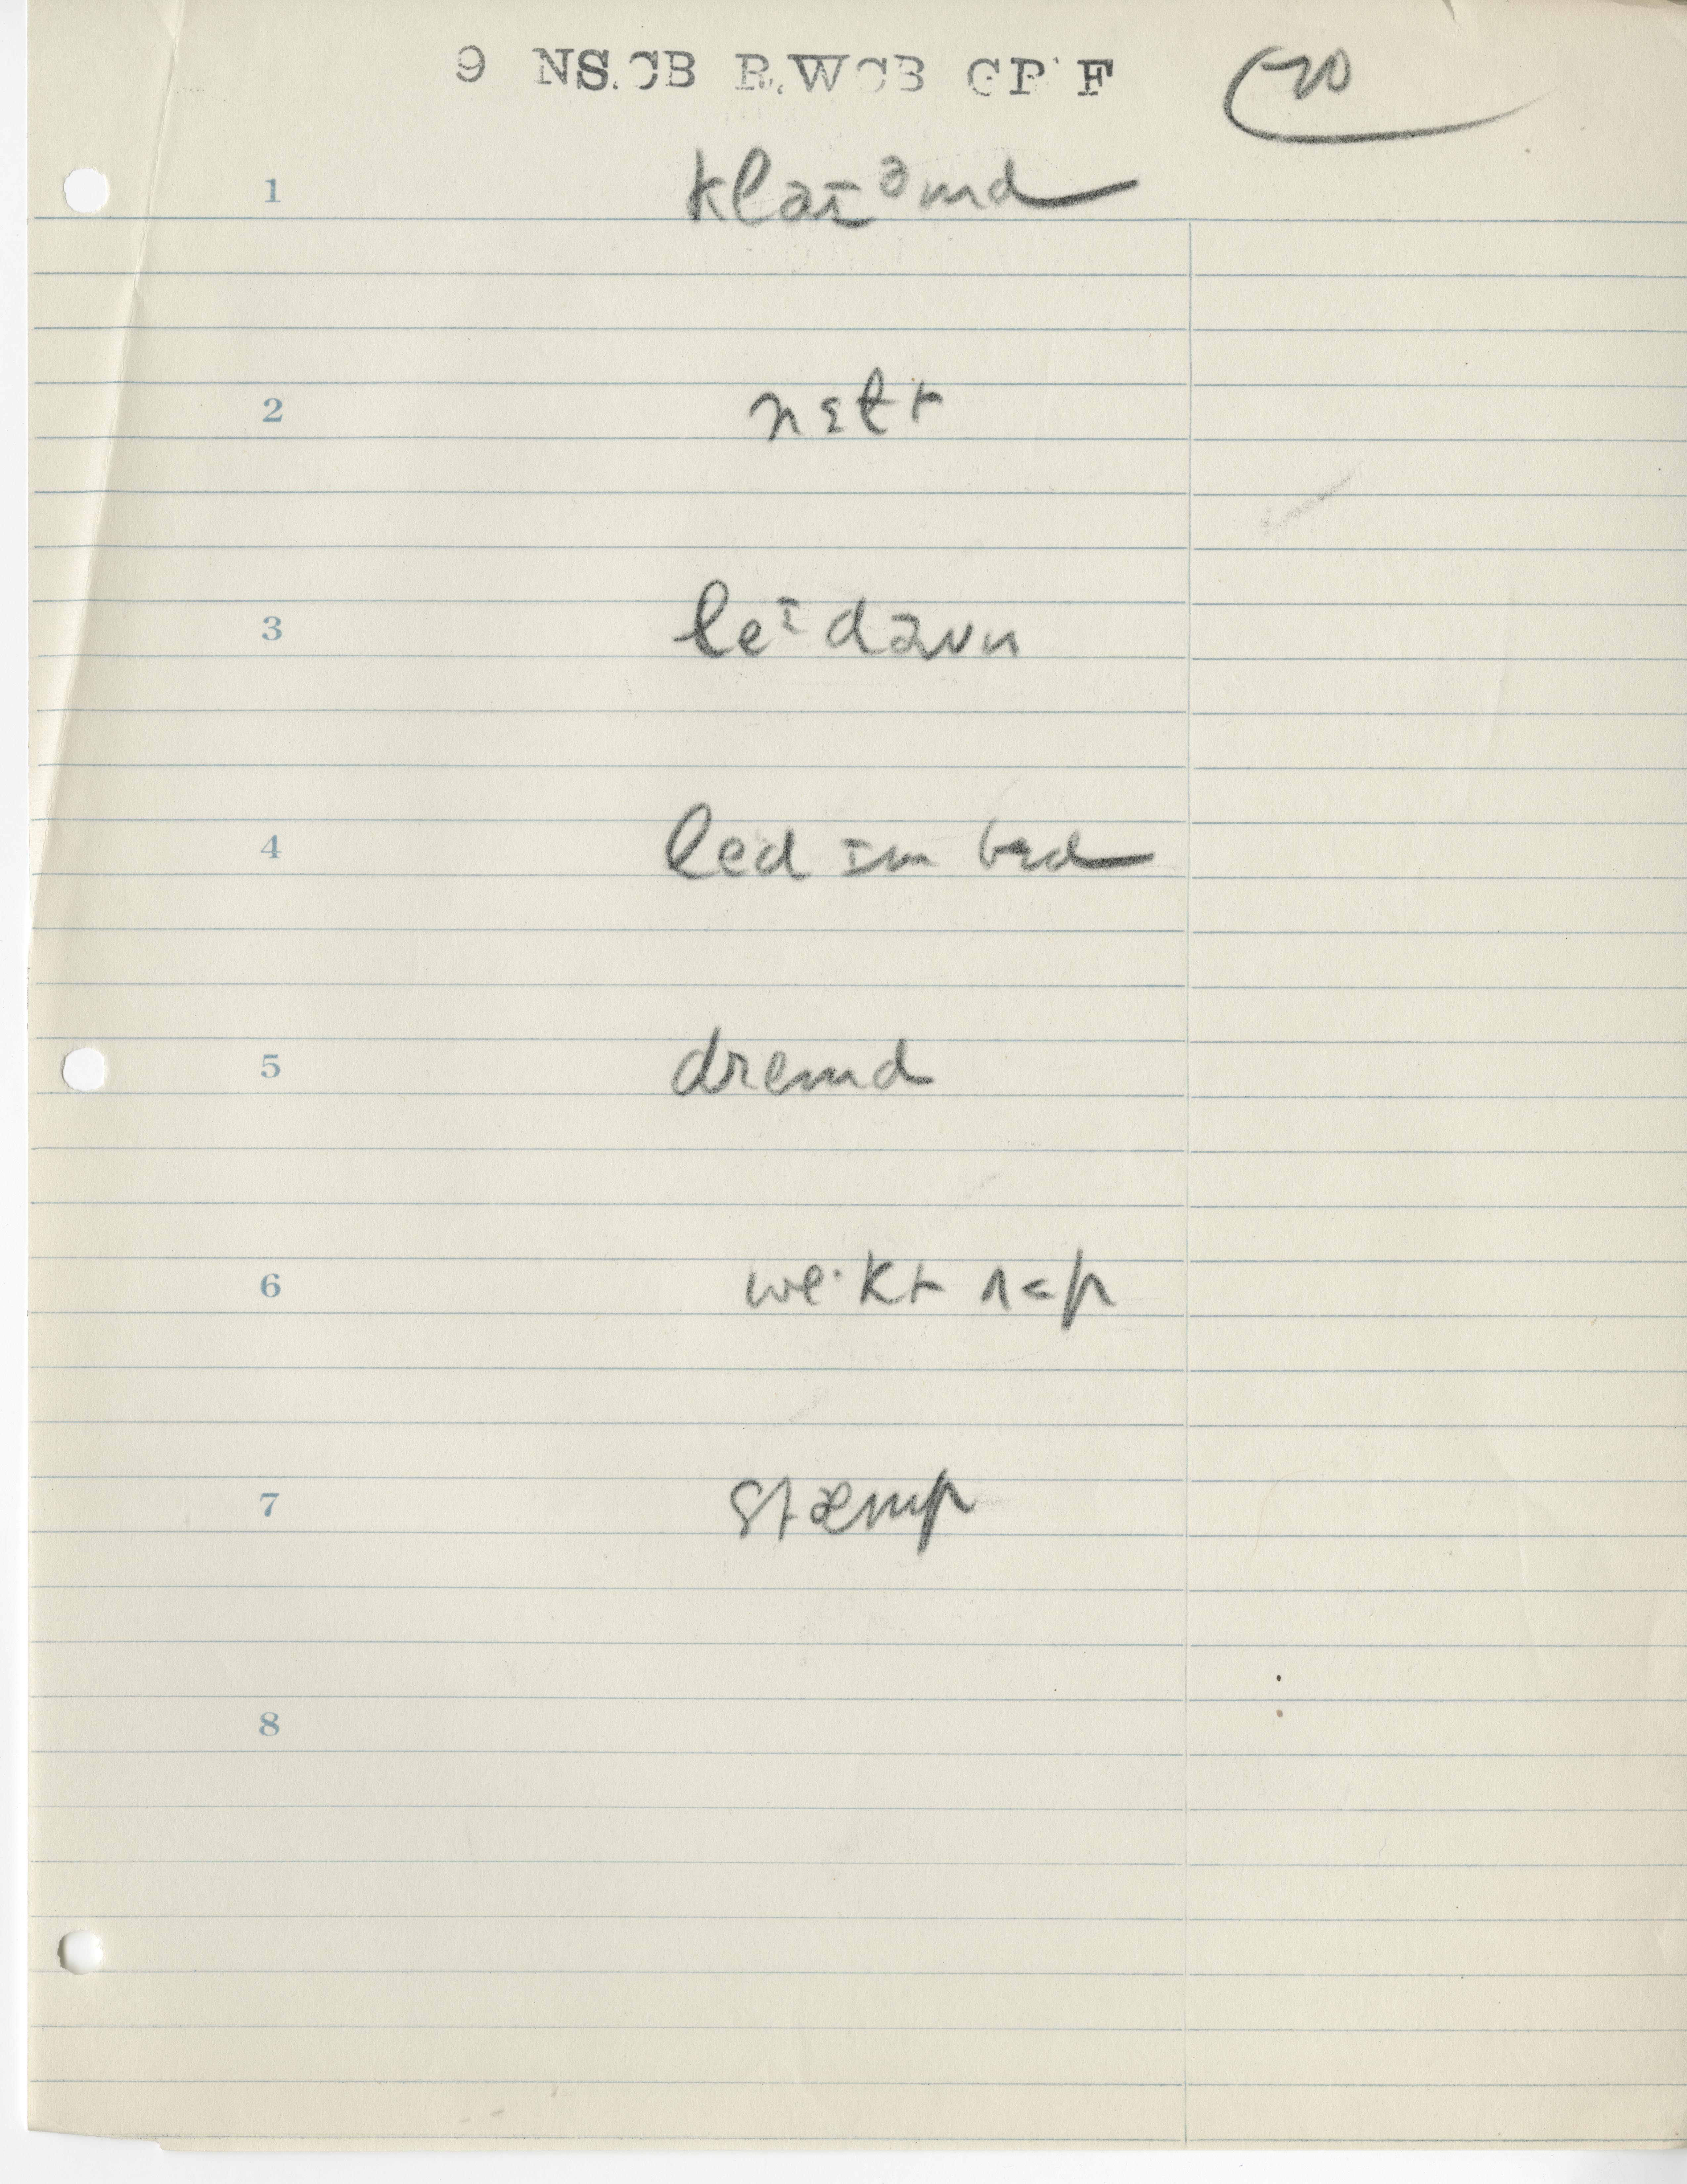 9 NS.CB R.WCB GP F
1 klaɪᵊmd
2 nɛlt
3 leᶦ daʊn
4 led ɪn bɛd
5 dremd
6 we·kt ʌ<p
7 stæmp
8